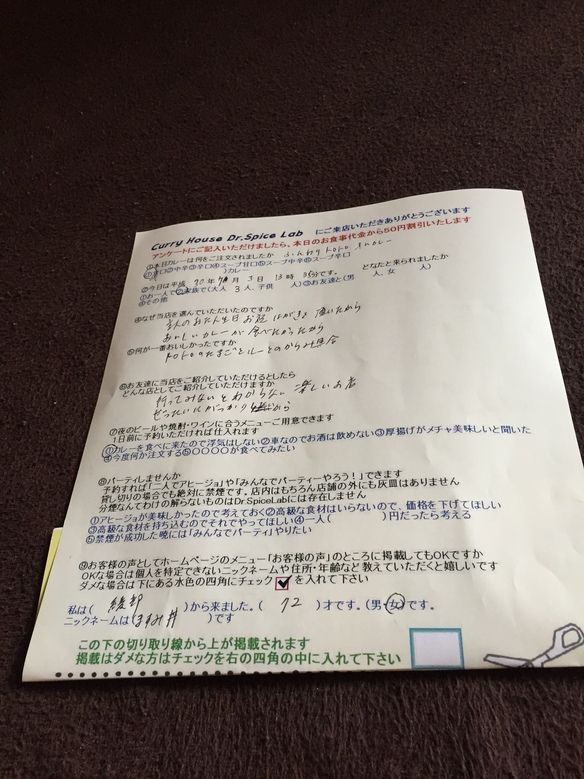 Curry House Dr.Spice Lab にご来店いただきありがとうございます
アンケートにご記入いただけましたら、本日のお食事代金から50円割引いたします
①本日カレーは何をご注文されましたか
①甘口②中辛③辛口④スープ甘口⑤スープ中辛⑥スープ辛口
)カレー
②今日は平成 年 月 日 13時 分です。 どなたと来られましたか
①お一人で②家族で(大人 3人、子供 人)③お友達と(男 人、女 人)
④その他
④なぜ当店を選んでいただいたのですか
主人のおたん生日 お店にはがきを頂いたから
おいしいカレーが食べたかったから
⑤何が一番おいしかったですか
トロトロのたまごとルーとのからみ具合
⑥お友達に当店をご紹介していただけるとしたら
どんな店としてご紹介していただけますか
行ってみないとわからない 楽しいお店
⑦夜のビールや焼酎・ワインに合うメニューご用意できます
1日前に予約いただければ仕入れます
①カレーを食べに来たので浮気はしない②車なのでお酒は飲めない③厚揚げがメチャ美味しいと聞いた
④今度何か注文する⑤〇〇〇〇が食べてみたい
⑧パーティしませんか
予約すれば「二人でアヒージョ」や「みんなでパーティーやろう!」できます
貸し切りの場合でも絶対に禁煙です。店内はもちろん店舗の外にも灰皿はありません
分煙なんてわけの解らないものはDr.SpiceLabには存在しません
①アヒージョが美味しかったので考えておく②高級な食材はいらないので、価格を下げてほしい
③高級な食材を持ち込むのでそれでやってほしい④一人( )円だったら考える
⑤禁煙が成功した暁には「みんなでパーティ」やりたい
⑨お客様の声としてホームページのメニュー「お客様の声」のところに掲載してもOKですか
OKな場合は個人を特定できないニックネームや住所・年齢など教えていただくと嬉しいです
ダメな場合は下にある水色の四角にチェック を入れて下さい
私は( 綾部 )から来ました。( 72 )才です。(男・女)です。
ニックネームは( )です
この下の切り取り線から上が掲載されます
掲載はダメな方はチェックを右の四角の中に入れて下さい